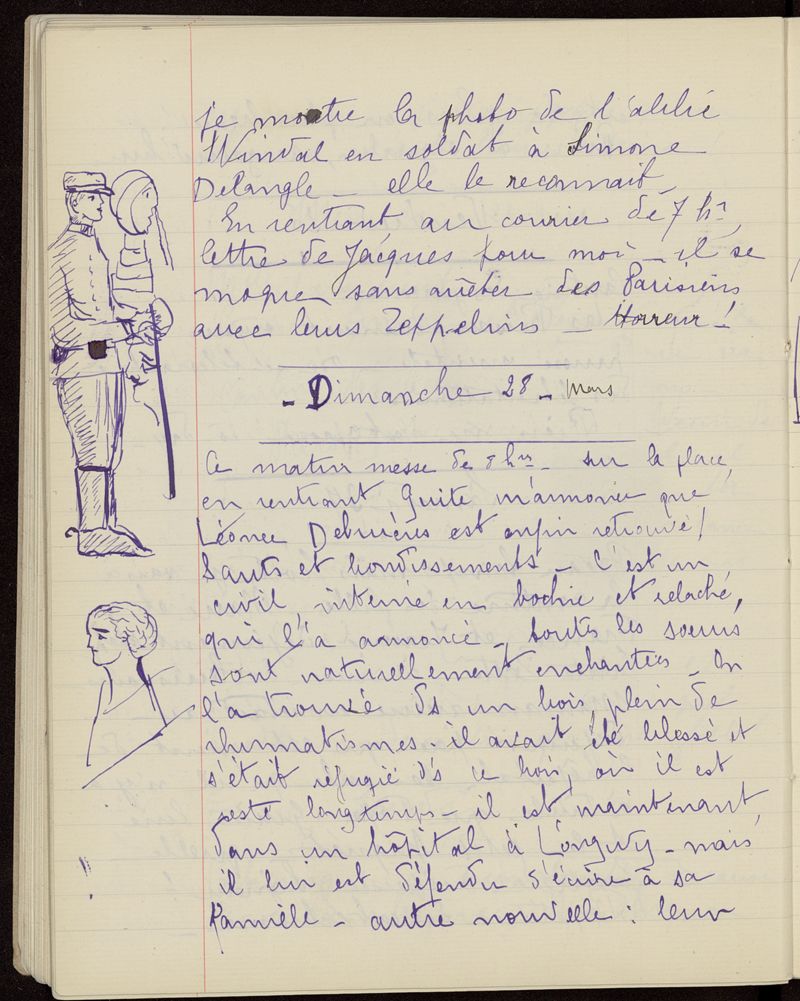 je montre la photo de l'abbé
Windal en soldat à Simone
Delangle - elle le reconnait -
En rentrant au courier de 7 hrs,
lettre de Jacques pour moi - il se
moque sans arrêter des Parisiens
avec leurs Zeppelins - Horreur !
- Dimanche 28 - Mars
Ce matin messe de 8 hres - sur la place,
en rentrant, Guite m'annonce que
Léonce Debruères est enfin retrouvé !
Sauts et bondissements - C'est un
civil, interné en bochie et relaché,
qui l'a annoncé - toutes les soeurs
sont naturellement enchantées - On
l'a trouvé ds un bois, plein de
rhumatismes - il avait été blessé et
s'était réfugié ds ce bois, où il est
resté longtemps - il est maintenant,
dans un hôpital à Longwy - mais
il lui est défendu d'écrire à sa
famille - autre nouvelle : leur